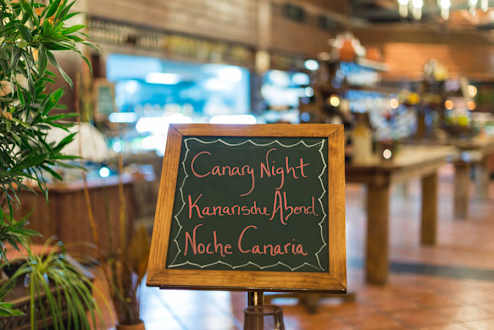 Canary Night
Kanarische Abend
Noche Canaria